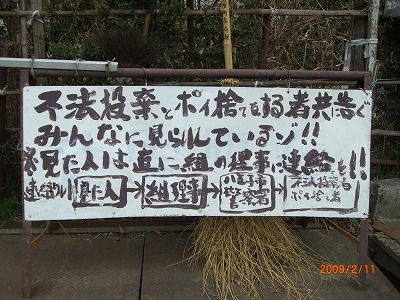 不法投棄とポイ捨てをする者共告ぐ
みんなに見られているゾ!!
見た人は直に組の理事に連絡を!!
見た人→組理事→八王子市警察署→不法投棄者ポイ捨て者
2009/2/11